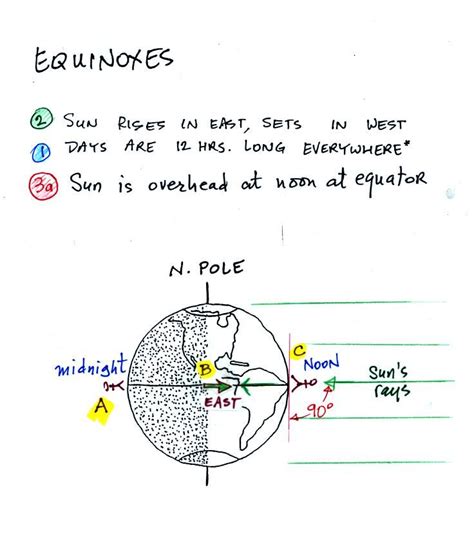 EQUINOXES
2 SUN RISES IN EAST, SETS IN WEST
1 DAYS ARE 12 HRS. LONG EVERYWHERE*
3a Sun is overhead at noon at equator
N. POLE
midnight
A
B
EAST
C
NOON
90°
Sun's
rays